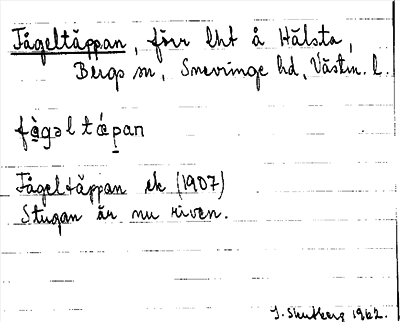 Fågeltäppan, förr lht å Hälsta,
Bergs sn, Snevringe hd, Västm. l.
fàgəl tǽpan
Fågeltäppan ek (1907)
Stugan är nu riven.
J. Skutberg 1962.